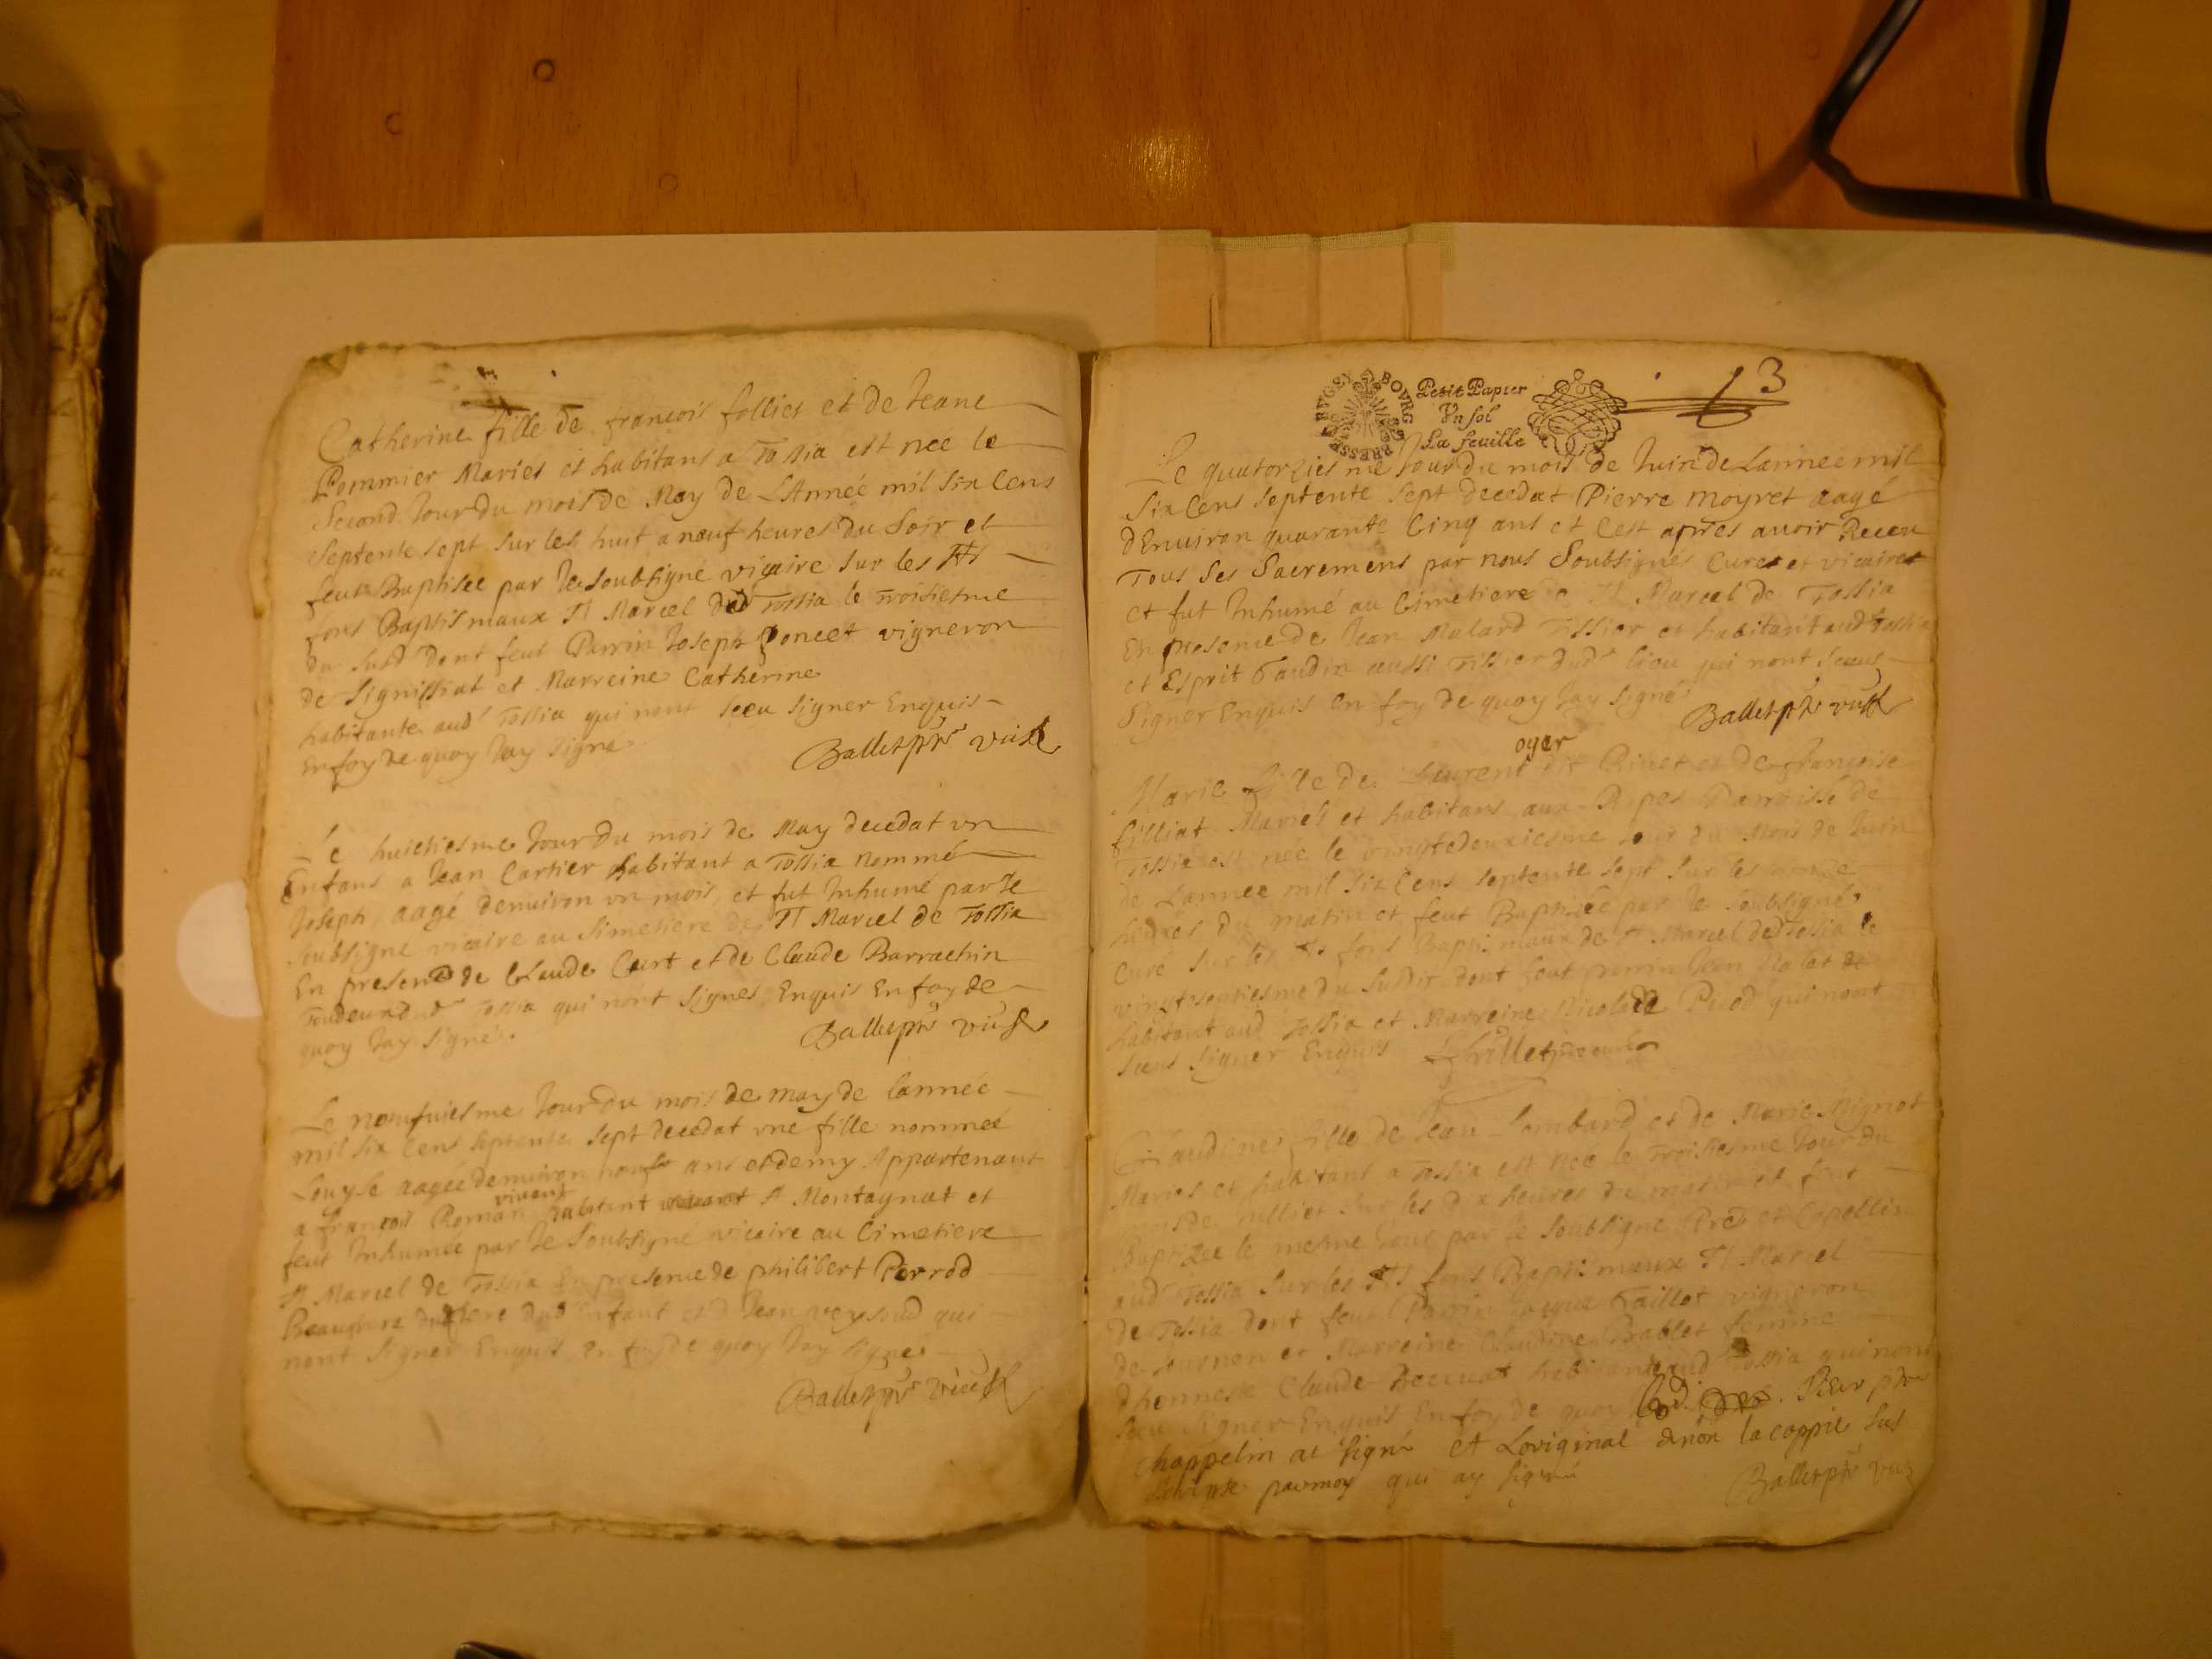 Catherine fille de francois follies et de Jeane
Pommier Maries et habitans a Tossia est née le
Second Jour du mois de May de LAnnée mil Six Cens
Septente sept sur les huit a nœuf heures du Soir et
feut Baptisée par Je soubsigné vicaire sur les Sts
fons Baptismaux St Marcel de Tossia le Troisiesme
du susd dont feut Parrin Joseph Poncet vigneron
de Signissiat et Marreine Catherine
habitante audt Tossia qui nont sceu signer Enquis
En foy de quoy Jay signé
Ballet ptr vic
Le huictiesme Jour du mois de May decedat un
Enfans a Jean Cartier habitant a Tossia nommé
Joseph aagé denuiron un mois, et fut Inhumé par Je
soubsigné vicaire au Simetiere de St Marcel de Tossia
En presence de Claude Curt et de Claude Barrachin
Tossia qui nont signes Enquis En foy de
quoy Jay signé.
Ballet ptr vic
Le nœufuiesme Jour du mois de may de lannée
mil six Cens septente sept decedat une fille nommeé
Louyse aagée denuiron ans et demy Appartenant
vivant
a francois Roman habitant St Montagnat et
feut Inhumée par Je Soubsigné vicaire au Cimetiere
St Marcel de Tossia En presence de philibert Perrod
Enfant et d Jean qui
nont signer Enquis En foy de quoy Jay signe
Ballet ptr vic
BOVRG BRESSE BVGEY
Petit Papier
Vn sol
La feuille
3
Le quatorziesme Jour du mois de Juin de Lannee mil
Six Cens septente sept decedat Pierre Moyret aagé
dEnuiron quarante Cinq ans et Cest apres auoir Receu
Tous ses Sacremens par nous Soubsignés Cures et vicaires
et fut Inhumé au Cimetiere St Marcel de Tossia
En presence de Jean Malard Tissier et habitant audt Tossia
et Esprit Gaudin aussi Tissier dudt lieu qui nont sceus
Signer Enquis En foy de quoy Jay signé
Ballet ptr vic
oyer
Marie fille de Laurent dit Riuet et de françoise
filliat Mariés et habitans aux Rippes Parroisse de
Tossia est née le vingtedeuxiesme Jour du Mois de Juin
de Lannee mil six Cens septente sept sur les
heures du matin et feut Baptisée par Je soubsigné
Curé sur les Sts fons Baptismaux de St Marcel de Tossia le
vingtseptiesme du susdit dont feut Parrin Jean
habitant aud Tossia et Marreine qui nont
sceus signer Enquis
Claudine fille de Jean Lombard et de Marie Mignot
Maries et habitans a Tossia est née le Troisiesme Jour du
mois de Julliet sur les dix heures du matin et feut
Baptizée le mesme Jour par Je soubsigné
aud Tossia sur les Sts fons Baptismaux St Marcel
de Tossia dont feut Parrin Jaque Gaillot vigneron
de Journan et Marreine Claudine Brablet femme
dhonneste Claude habitante aud Tossia qui nont
sceu signer Enquis En foy de quoy
chappelin at signé et Loriginal la coppie
par moy qui ay signé
Ballet ptr vic